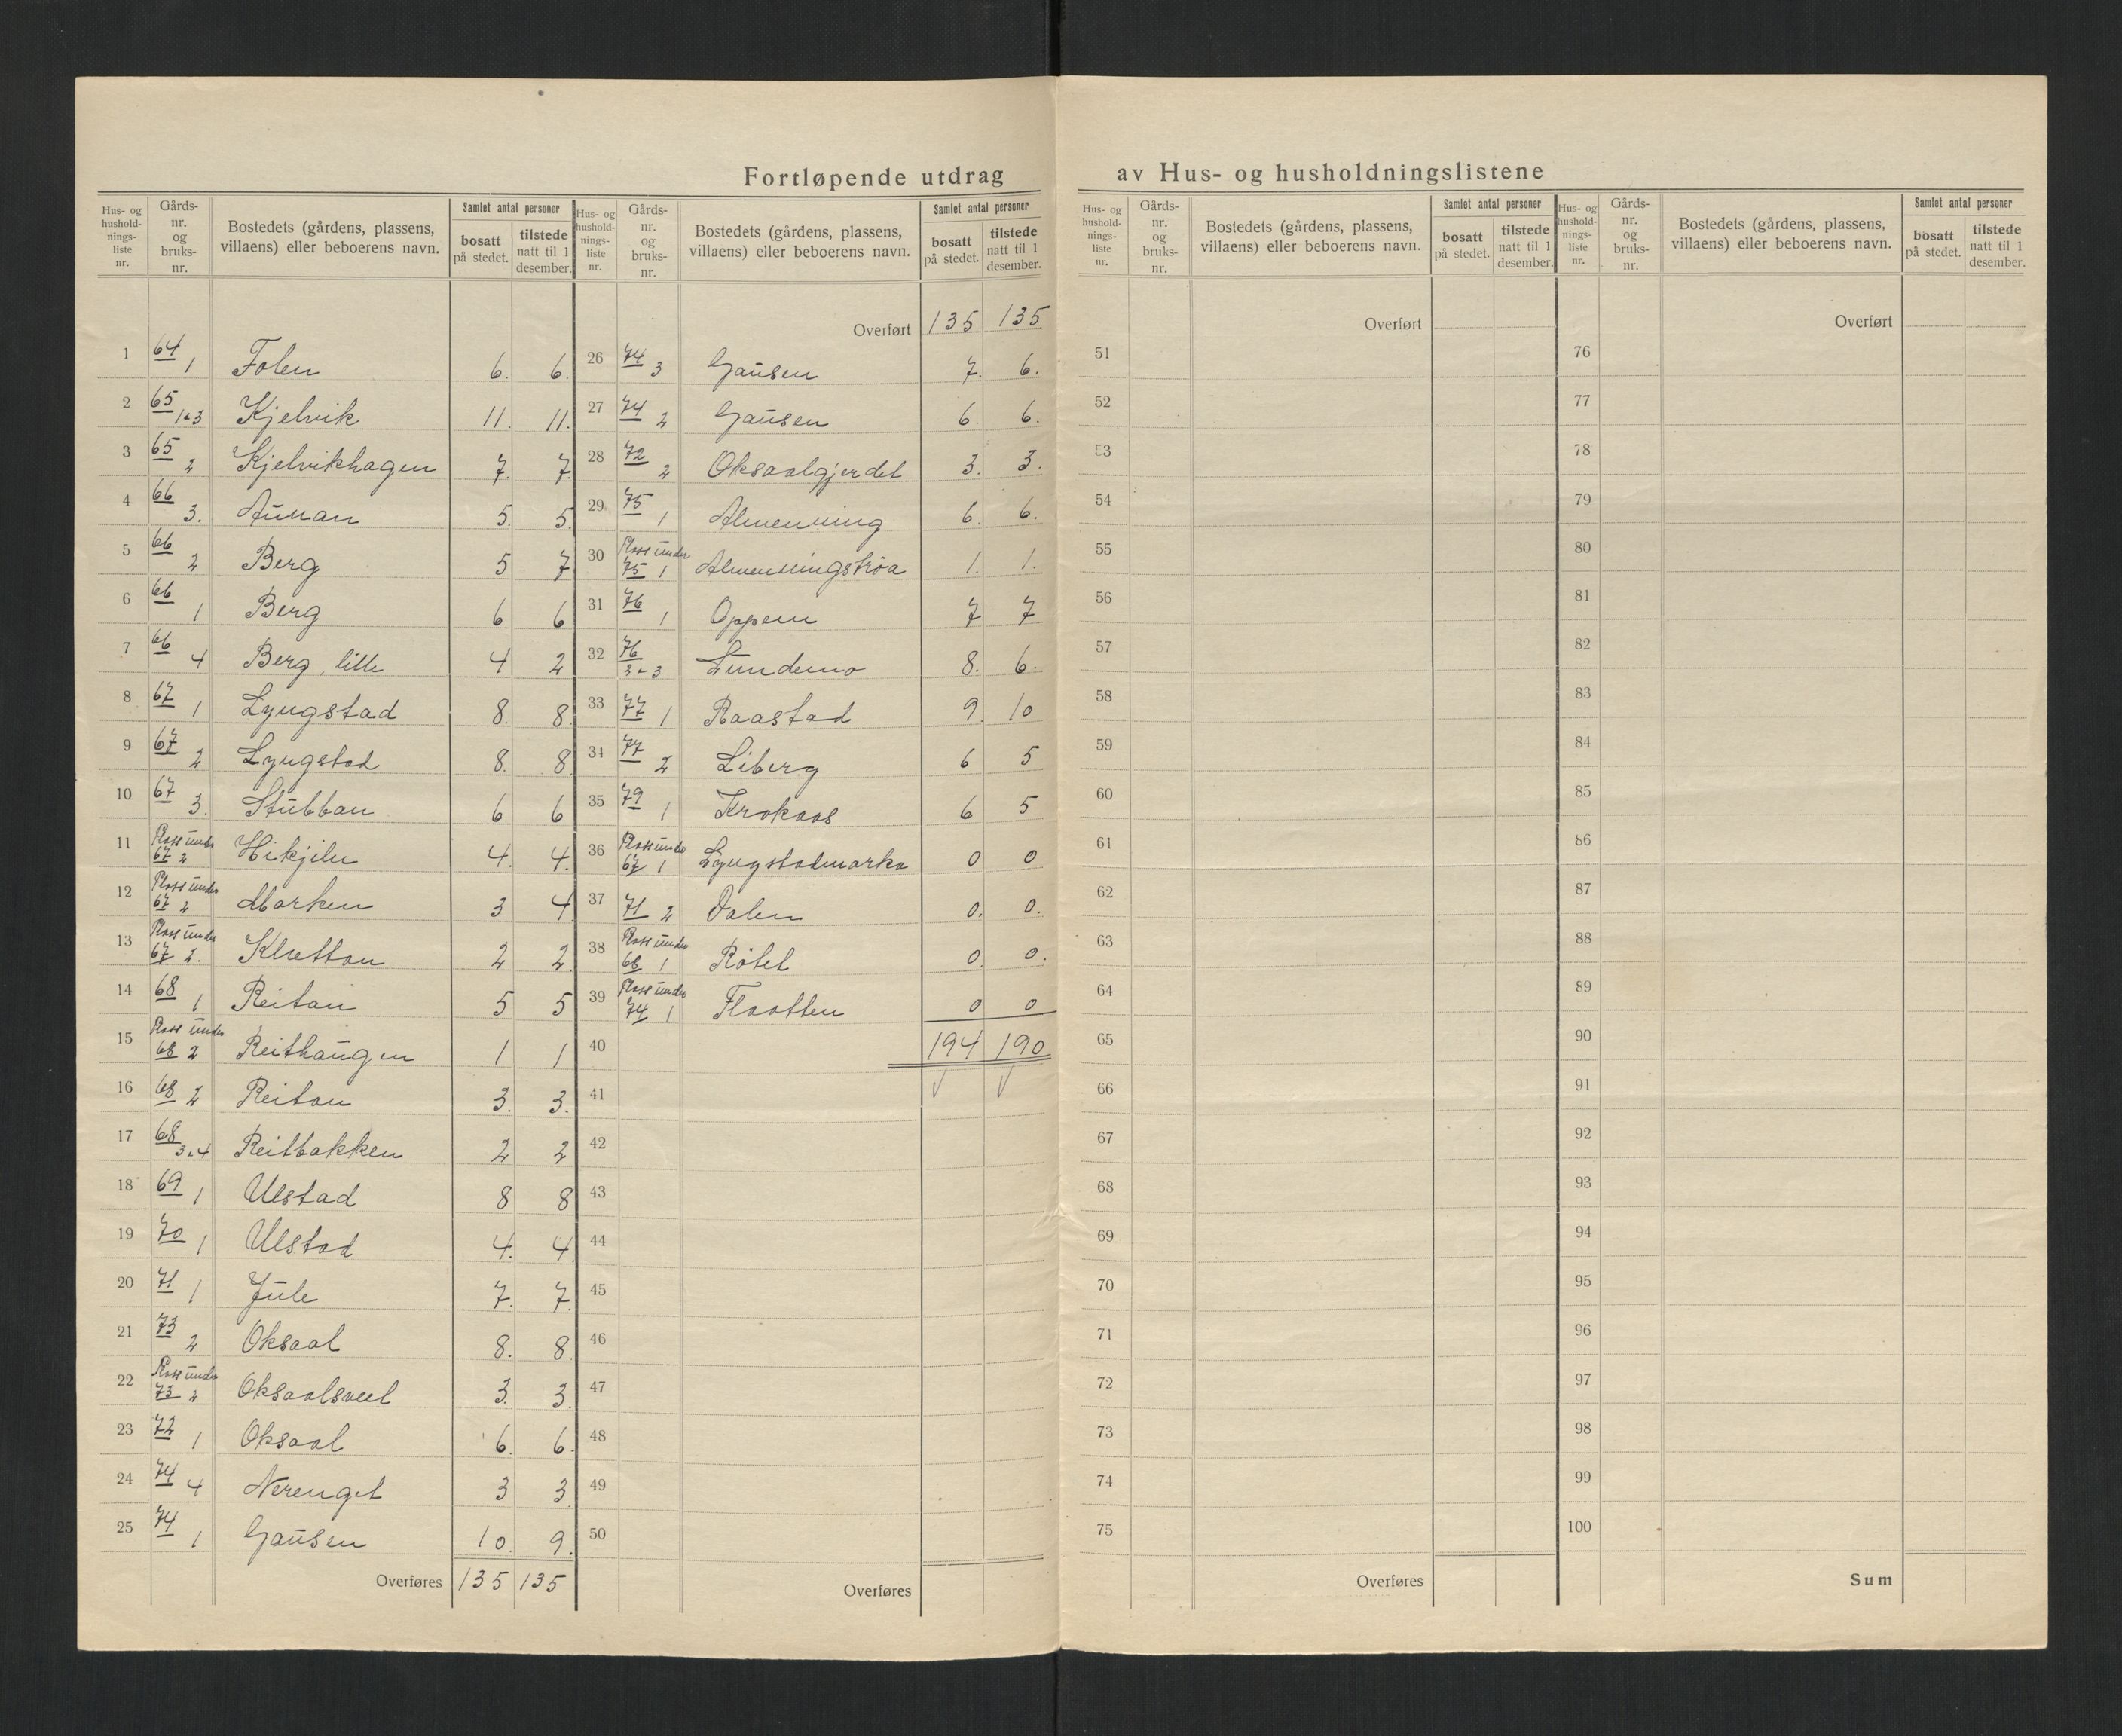 Fortløpende utdrag av Hus- og husholdningslistene
Hus- og hushold-nings-liste nr. | Gårds-nr. og bruks-nr. | Bostedets (gårdens, plassens, villaens) eller beboerens navn. | Samlet antal personer | bosatt på stedet. | tilstede natt til 1 desember.
1 64 1 Folen 6. 6.
2 65 1&3 Kjelvik 11. 11.
3 65 2 Kjelvikhagen 7. 7.
4 66 3. Aunan 5. 5.
5 66 2 Berg 5 7
6 66 1 Berg 6 6
7 66 4 Berg, lille 4 2
8 67 1 Lyngstad 8. 8.
9 67 2 Lyngstad 8. 8
10 67 3. Stubban 6 6
11 Plass under 67 2 4. 4.
12 Plass under 67 2 Marken 3 4
13 Plass under 67 2. Kletten 2 2.
14 68 1 Reitan 5 5
15 Plass under 68 2 Reithaugen 1 1
16 68 2 Reitan 3. 3.
17 68 3&4 Reitbakken 2 2
18 69 1 Ulstad 8 8
19 70 1 Ulstad 4. 4
20 71 1 Jule 7. 7.
21 73 2 Oksaal 8. 8
22 Plass under 73 2 3. 3.
23 72 1 Oksaal 6. 6.
24 74 4 Nerenget 3 3
25 74 1 Gausen 10. 9.
Overføres 135 135
Hus- og hushold-nings-liste nr. | Gårds-nr. og bruks-nr. | Bostedets (gårdens, plassens, villaens) eller beboerens navn. | Samlet antal personer | bosatt på stedet. | tilstede natt til 1 desember.
Overført 135 135
26 74 3 Gausen 7. 6.
27 74 2 Gausen 6. 6.
28 72 2 Oksaalgjerdet 3. 3.
29 75 1 Almenning 6. 6.
30 Plass under 75 1 Almenningstrøa 1. 1.
31 76 1 Oppem 7 7
32 76 2&3 Lundemo 8. 6.
33 77 1 Raastad 9. 10
34 77 2 Liberg 6 5
35 79 1 Krokaas 6 5
36 Plass under 67 1 Lyngstadmarka 0 0
37 71 2 Dalen 0. 0.
38 Plass under 68 1 Røtet 0. 0.
39 Plass under 74 1 Flaatten 0 0
40 194 190
41
42
43
44
45
46
47
48
49
50
Overføres
Hus- og hushold-nings-liste nr. | Gårds-nr. og bruks-nr. | Bostedets (gårdens, plassens, villaens) eller beboerens navn. | Samlet antal personer | bosatt på stedet. | tilstede natt til 1 desember.
Overført
51
52
53
54
55
56
57
58
59
60
61
62
63
64
65
66
67
68
69
70
71
72
73
74
75
Overføres
Hus- og hushold-nings-liste nr. | Gårds-nr. og bruks-nr. | Bostedets (gårdens, plassens, villaens) eller beboerens navn. | Samlet antal personer | bosatt på stedet. | tilstede natt til 1 desember.
Overført
76
77
78
79
80
81
82
83
84
85
86
87
88
89
90
91
92
93
94
95
96
97
98
99
100
Sum